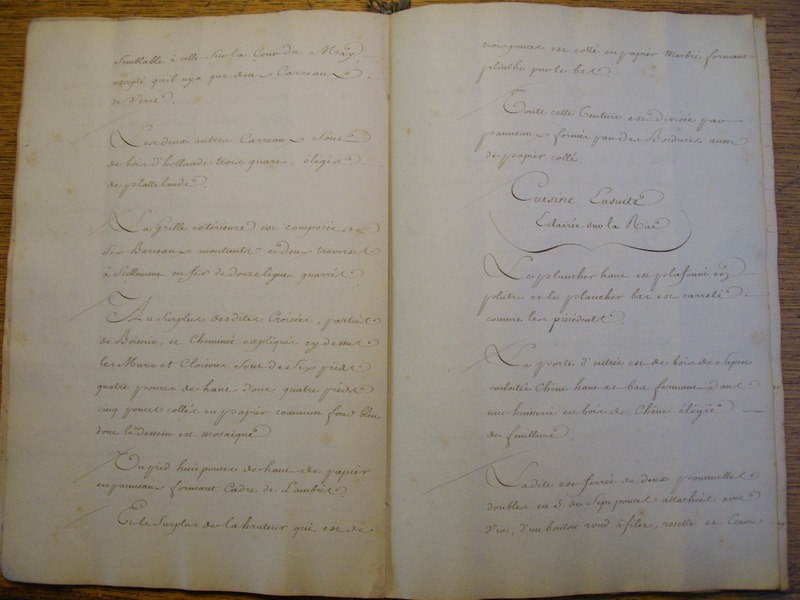 Semblable à celle Sur la Cour du May
excepté quil n'y a que deux Carreaux
de Verre.
Les deux autres Carreaux Sont
de bois d'hollande trois quare, élegis
de plattebande.
La Grille extérieure est composée de
Six Barreaux montants et deux traverses
à Scellement en fer de douze lignes quarrés
Au Surplus desdites Croisées, parties
de Boiserie, et Cheminée expliqués cy dessus
les Murs et Cloisons Sont de Six pieds
quatre pouces de haut dont quatre pieds
cinq pouces collés en papier commun fond bleu
dont le dessein est mosaique
Un pied huit pouces de haut de papier
en panneaux formant Cadre de Lambris
Et le Surplus de la hauteur qui est de
trois pouces est collé en papier Marbré formant
plinthe par le bas.
Toute cette Tenture est divisée par
panneaux formés par des Bordures aussi
de papier collé
Cuisine Ensuite
Eclairée sur la Rüe
Le plancher haut est plafonné en
plâtre et le plancher bas est carrelé
comme les précédents.
La porte d'entrée est de bois de Sapin
emboitée Chêne haut et bas formant dans
une huisserie en bois de Chêne élégie
de feuillure
Ladite est ferrée de deux poumelles
doubles en S. de Sept pouces attachées avec
Vis, d'un bouton rond à filet, rosette et Ecrou